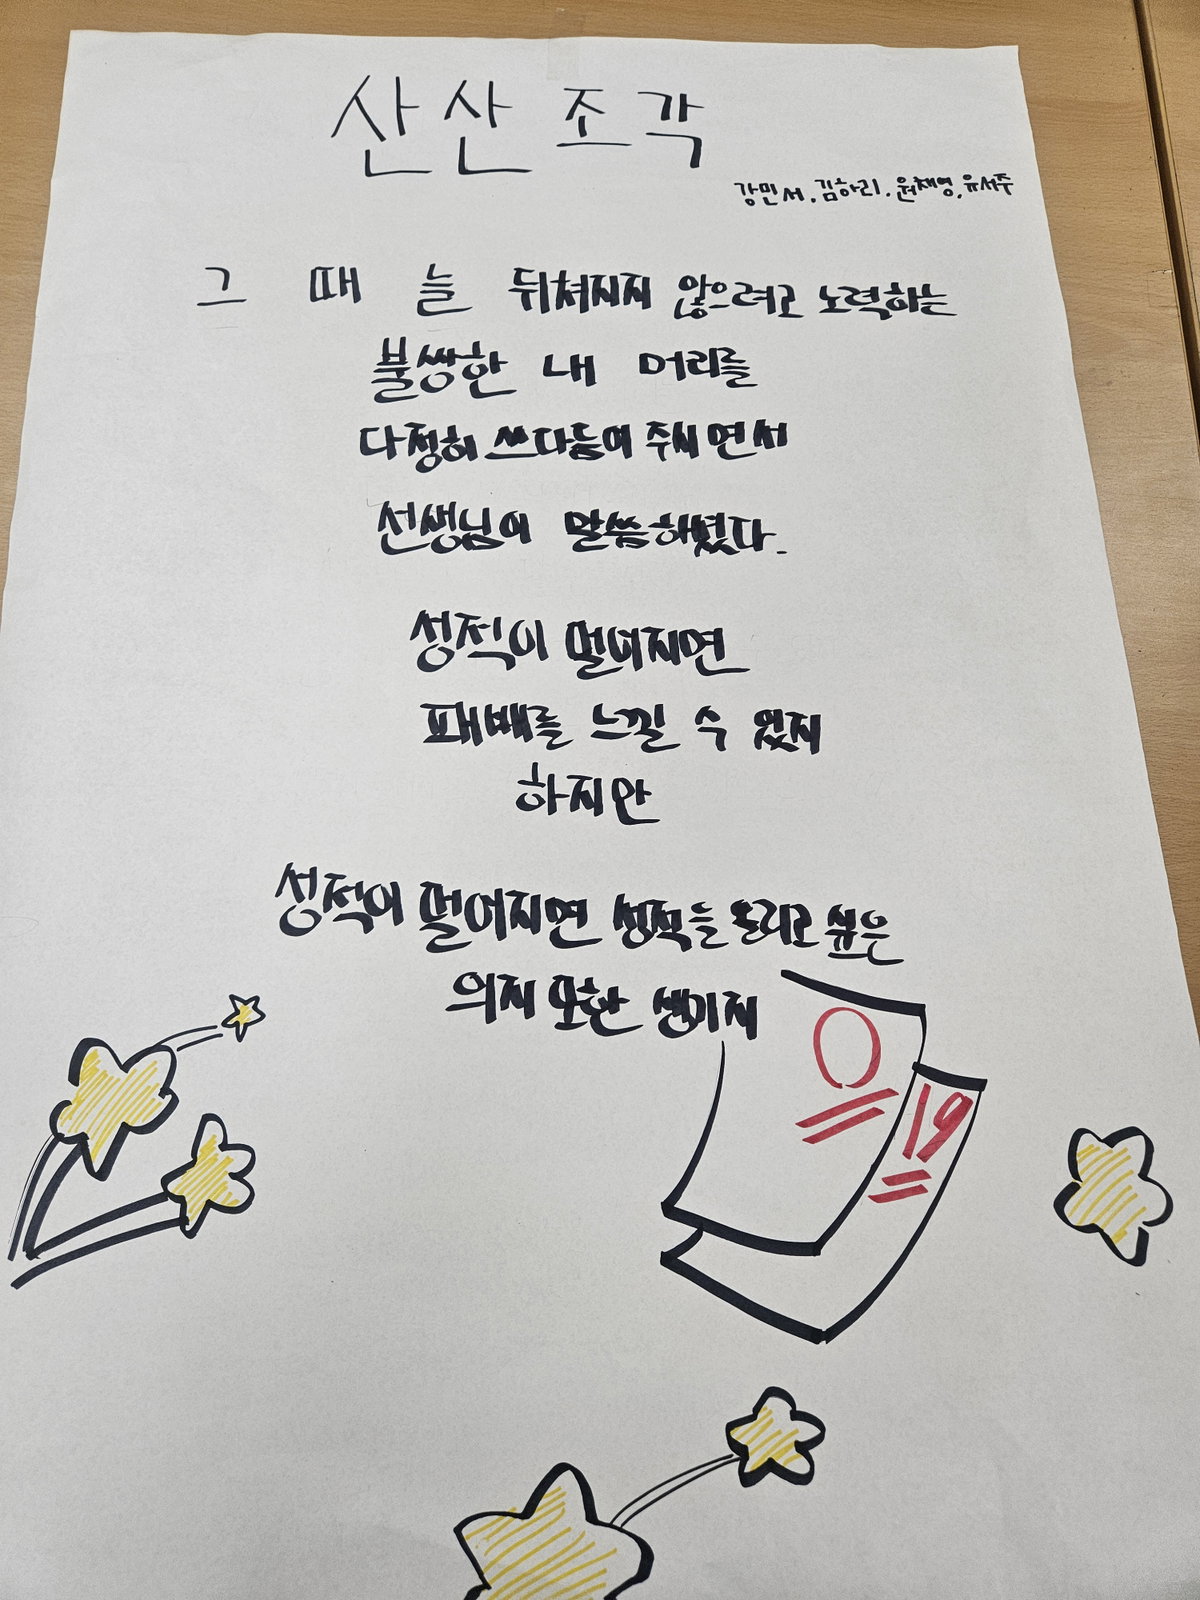 산산조각
강민서, 김하리, 원채영, 유서주
그 때 늘 뒤쳐지지 않으려고 노력하는
불쌍한 내 머리를
다정히 쓰다듬어 주시면서
선생님이 말씀하셨다.
성적이 떨어지면
패배를 느낄 수 있지
하지만
성적이 떨어지면 성적을 올리고 싶은
의지 또한 생기지
0
19